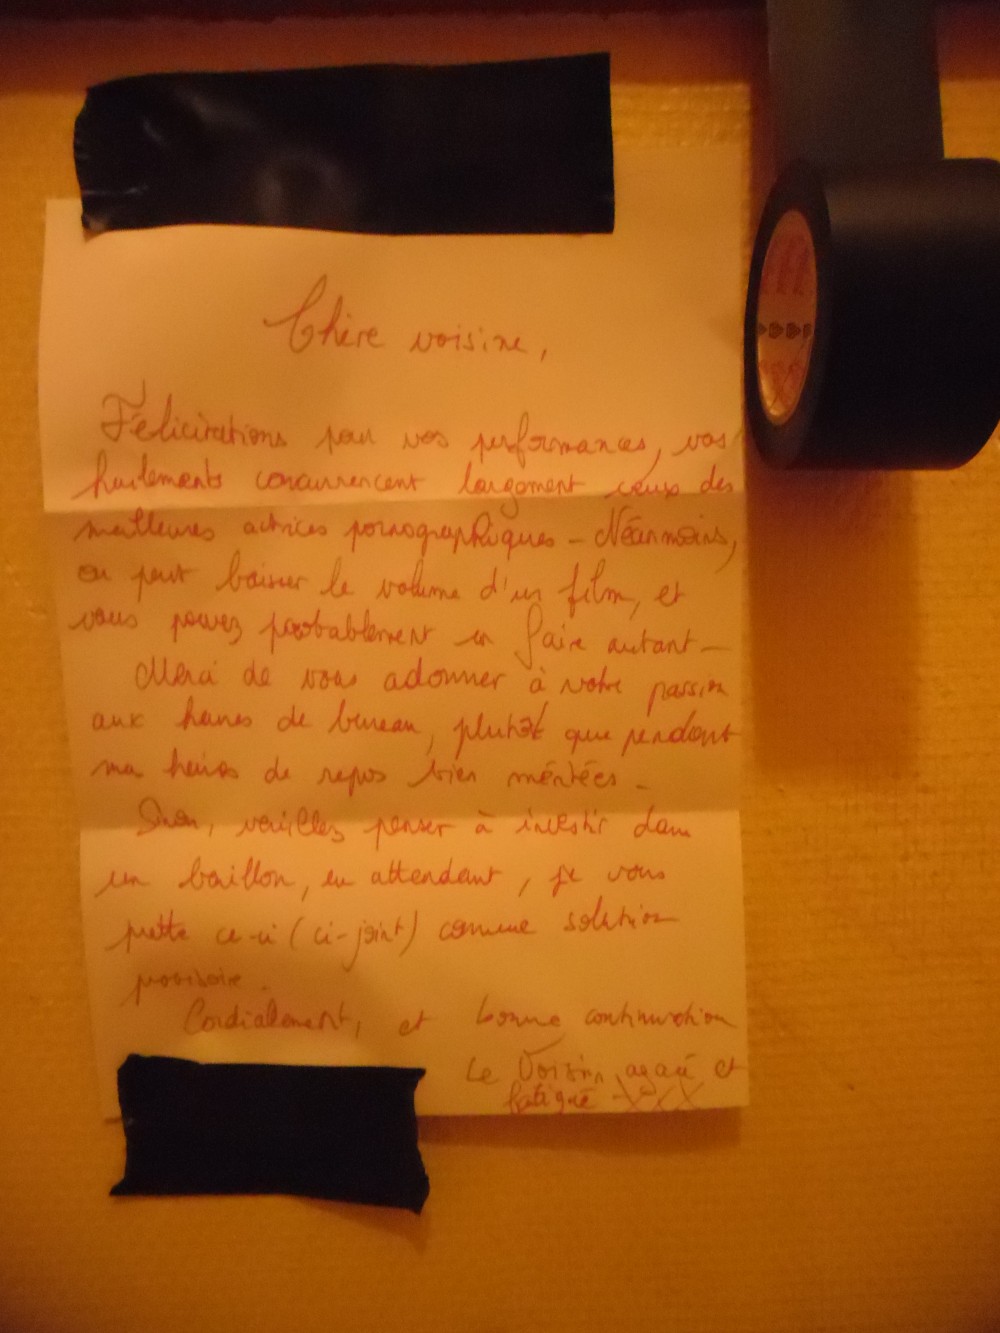 Chère voisine,
Félicitations pour vos performances, vos
hurlements concurrencent largement ceux des
meilleures actrices pornographiques - Néanmoins,
on peut baisser le volume d'un film, et
vous pouvez probablement en faire autant -
Merci de vous adonner à votre passion
aux heures de bureau, plutôt que pendant
ma heures de repos bien méritées -
Sinon, veuillez penser à investir dans
un baillon, en attendant, je vous
prette ce-ci (ci-joint) comme solution
provisoire.
Cordialement, et bonne continuation
Le Voisin agacé et
fatigué